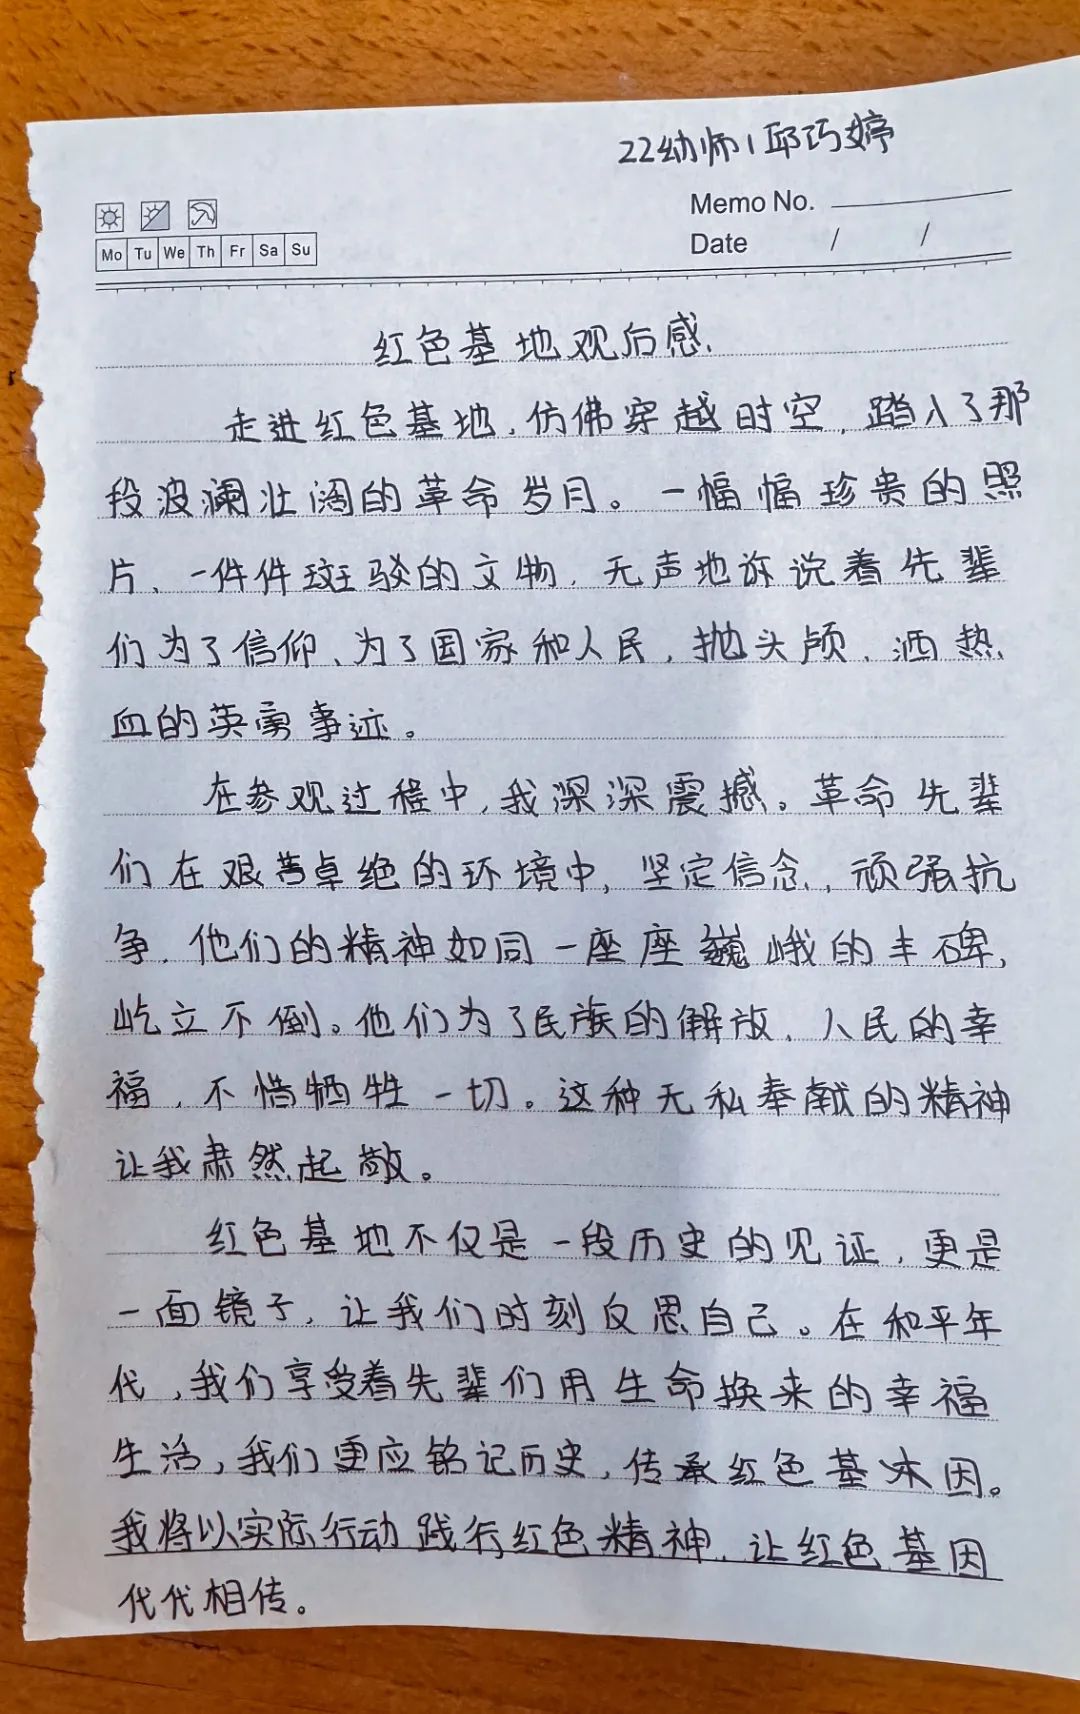 22幼师1邱巧婷
Memo No.
Mo Tu We Th Fr Sa Su
Date / /
红色基地观后感
走进红色基地,仿佛穿越时空,踏入了那
段波澜壮阔的革命岁月。一幅幅珍贵的照
片、一件件斑驳的文物,无声地诉说着先辈
们为了信仰、为了国家和人民,抛头颅、洒热
血的英勇事迹。
在参观过程中,我深深震撼。革命先辈
们在艰苦卓绝的环境中,坚定信念,顽强抗
争,他们的精神如同一座座巍峨的丰碑,
屹立不倒。他们为了民族的解放、人民的幸
福,不惜牺牲一切。这种无私奉献的精神
让我肃然起敬。
红色基地不仅是一段历史的见证,更是
一面镜子,让我们时刻反思自己。在和平年
代,我们享受着先辈们用生命换来的幸福
生活,我们更应铭记历史,传承红色基因。
我将以实际行动践行红色精神,让红色基因
代代相传。